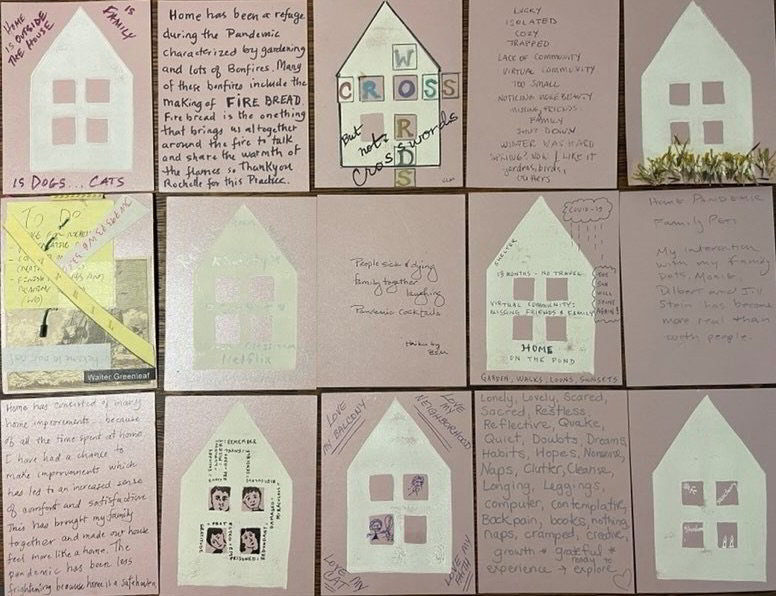 HOME
IS OUTSIDE
THE HOUSE
IS
FAMILY
IS DOGS... CATS
Home has been a refuge
during the Pandemic
characterized by gardening
and lots of Bonfires. Many
of these bonfires include the
making of FIRE BREAD.
Fire bread is the one thing
that brings us all together
around the fire to talk
and share the warmth of
the flames so Thank you
Rochelle for this Practice.
CROSS
WORDS
But
not
Crosswords
LUCKY
ISOLATED
COZY
TRAPPED
LACK OF COMMUNITY
VIRTUAL COMMUNITY
TOO SMALL
NOTICING MORE BEAUTY
MISSING FRIENDS.
FAMILY
SHUT DOWN
WINTER WAS HARD
SPRING! NOW I LIKE IT
gardens, birds,
critters
TO DO
Walter Greenleaf
Netflix
People sick & dying
family together
laughing
Pandemic Cocktails
Haiku by
COVID-19
SHELTER
18 MONTHS - NO TRAVEL
VIRTUAL COMMUNITY:
MISSING FRIENDS & FAMILY
THE
SUN
WILL
SHINE
AGAIN!
HOME
ON THE POND
GARDEN, WALKS, LOONS, SUNSETS
Home Pandemic
Family Pets
My interaction
with my family
pets, Moxie,
Dilbert and Jill
Stein has become
more real than
with people.
Home has consisted of many
home improvements because
of all the time spent at home
I have had a chance to
make improvements which
has led to an increased sense
of comfort and satisfaction
This has brought my family
together and made our house
feel more like a home. The
pandemic has been less
frightening because home is a safe haven
REMEMBER
LOVE
MY BALCONY
LOVE
MY NEIGHBORHOOD
LOVE MY
CAT
LOVE MY
PATH
Lonely, Lovely, Scared,
Sacred, Restless,
Reflective, Quake,
Quiet, Doubts, Dreams,
Habits, Hopes, Nonsense,
Naps, Clutter, Cleanse,
Longing, Leggings,
computer, contemplative,
Back pain, books, nothing
naps, cramped, creative,
growth * grateful *
ready to
experience → explore